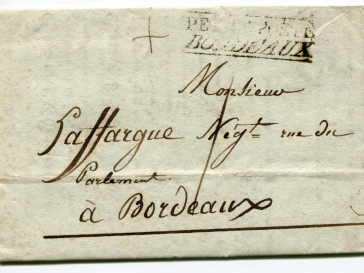 BORDEAUX
Monsieur
Laffargue Negt rue du
Parlement
à Bordeaux